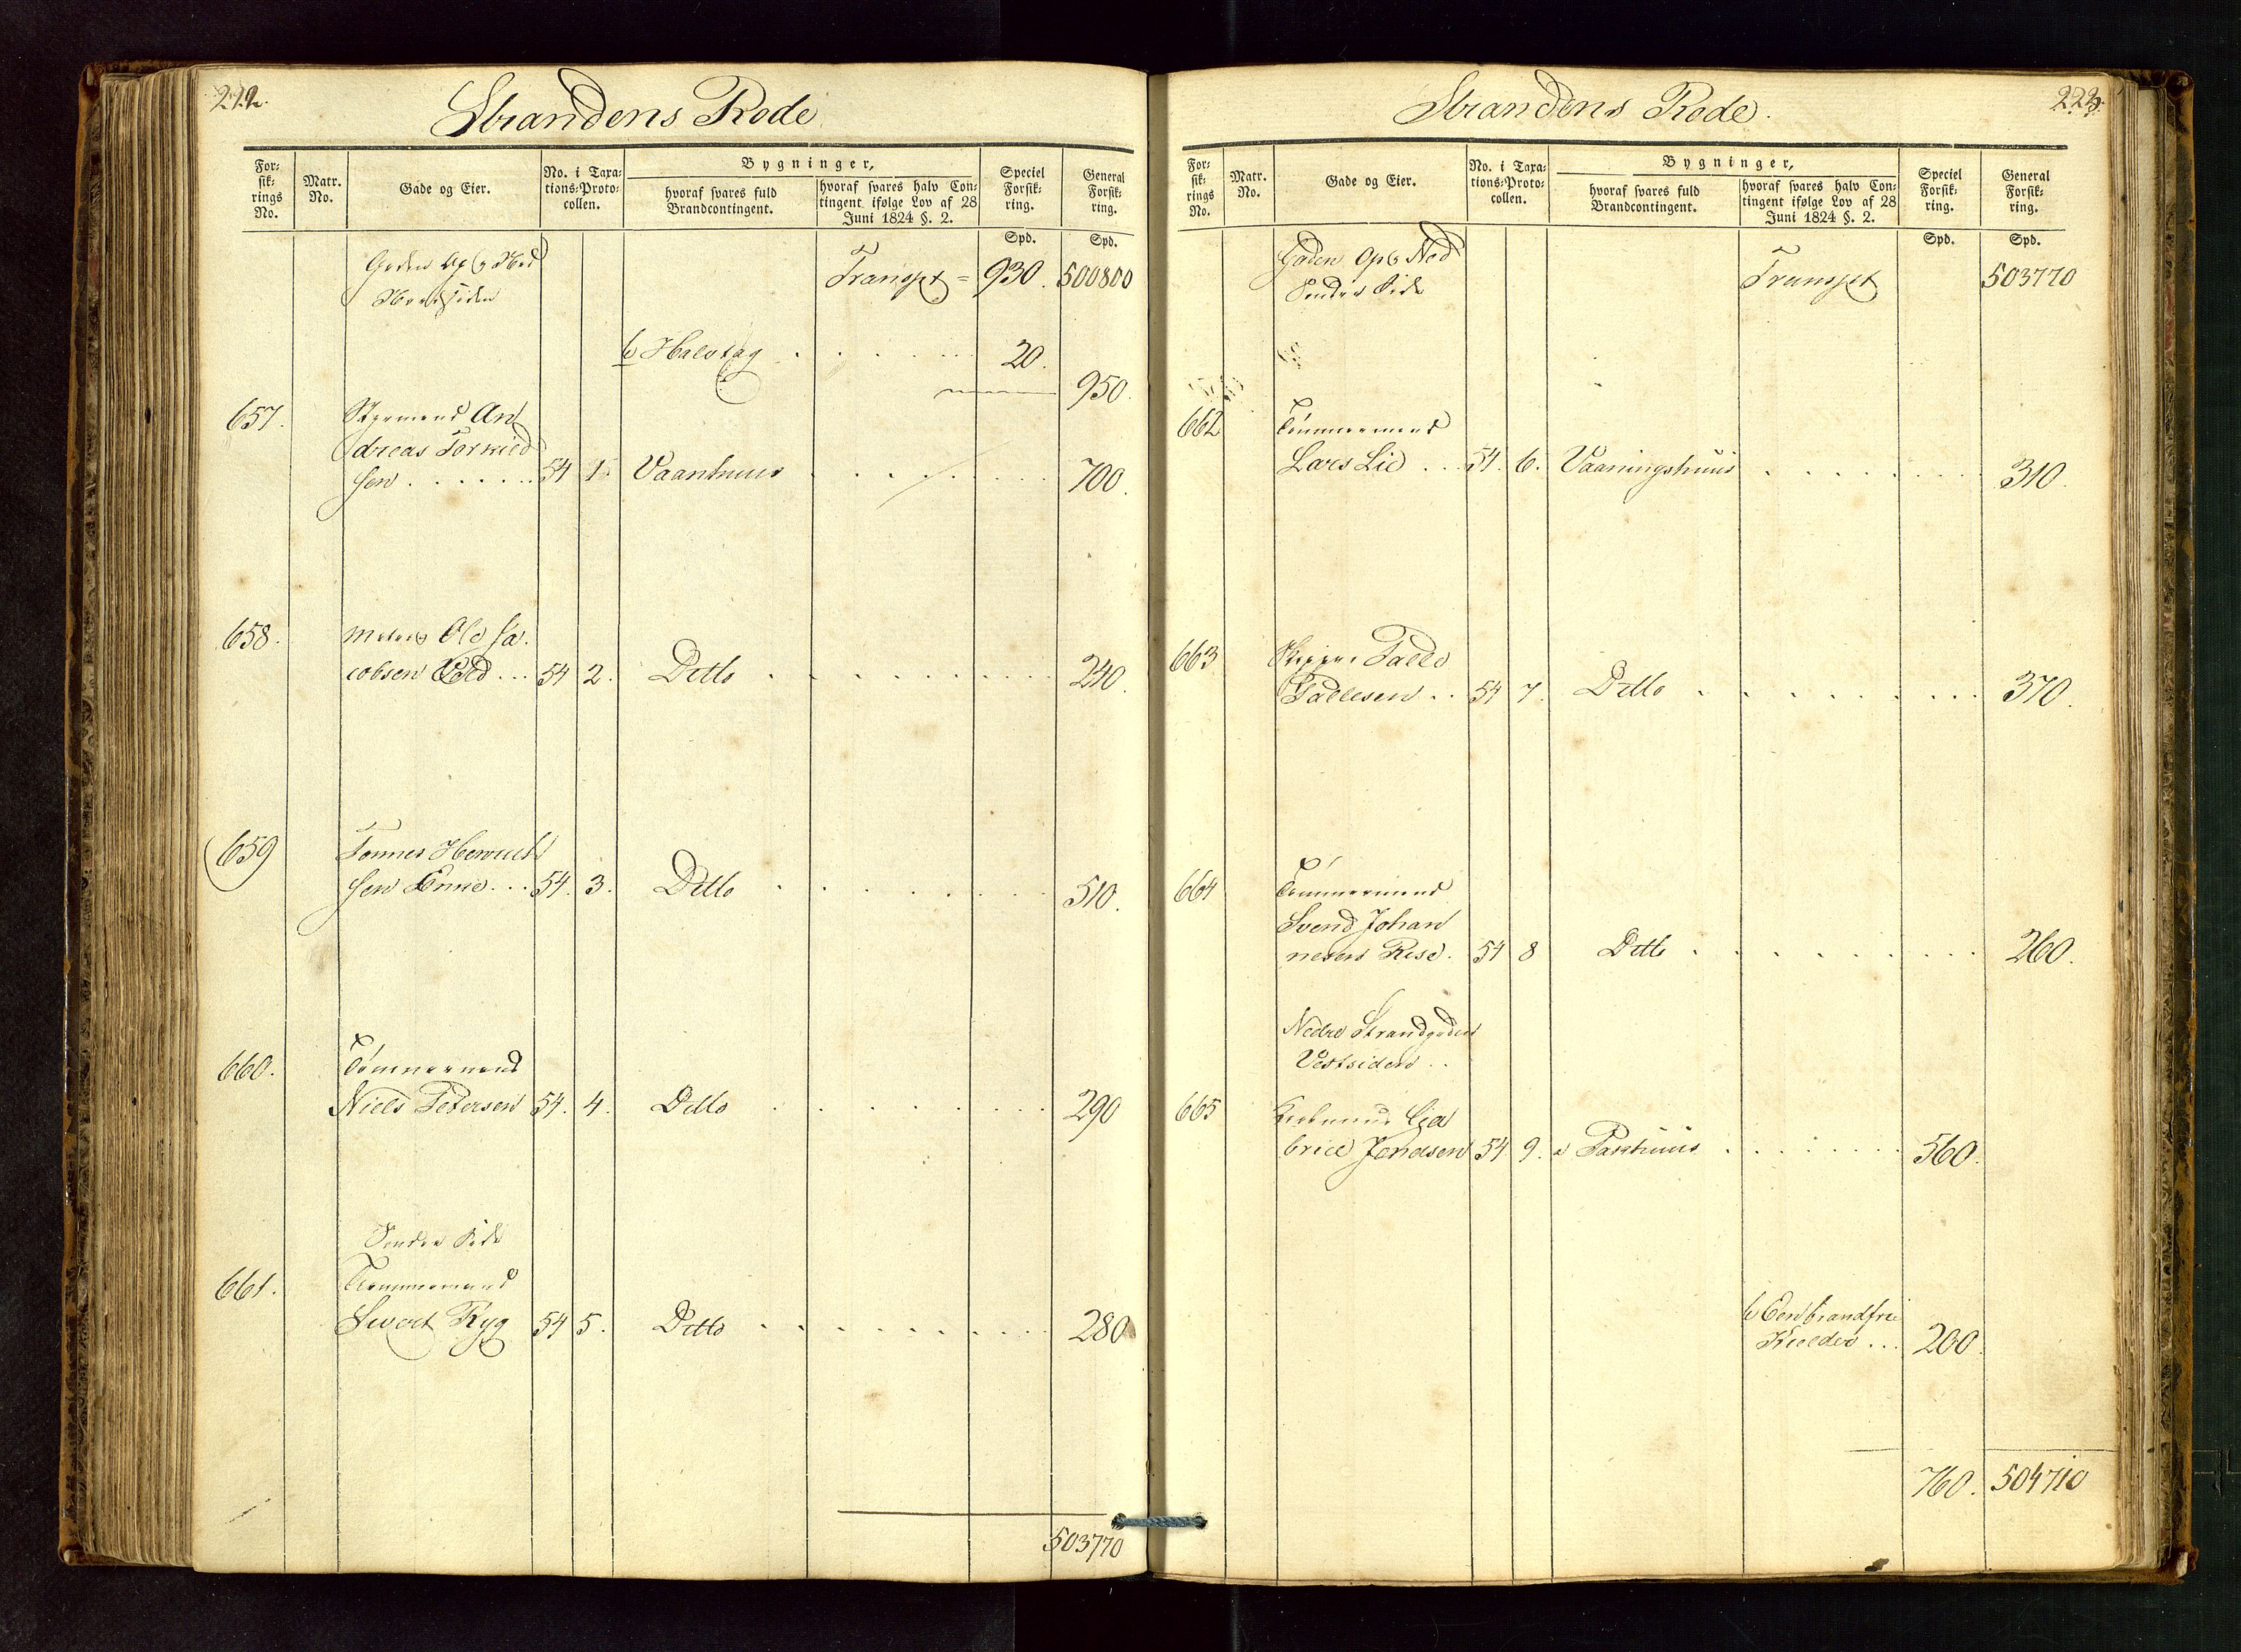 222.
Strandens Rode
For-
sik-
rings
No.
Matr.
No.
Gade og Eier.
No. i Taxa-
tions-Proto-
collen.
Bygninger,
hvoraf svares fuld
Brandcontingent.
hvoraf svares halv Con-
tingent ifølge Lov af 28
Juni 1824 §. 2.
Speciel
Forsik-
ring.
General
Forsik-
ring.
Spd.
Spd.
Gaden Op og Ned
Nordsiden
Transpt = 930. 500800
b Halvtag . . . . . . 20.
950.
657. Styrmand An
dreas Torkild
sen . . . . . . 54 1. Vaanhuus . . . . . . 700.
658. Ole Ja
cobsen . . . 54 2. Ditto . . . . . . 240.
659 Tønnes
sen . . . 54. 3. Ditto . . . . . . 510.
660. Tømmermand
Niels Petersen 54. 4. Ditto . . . . . . 290
Søndre Side
661. Tømmermand
Sivert Ryg 54 5. Ditto . . . . . . 280
503770
223.
Strandens Rode.
For-
sik-
rings
No.
Matr.
No.
Gade og Eier.
No. i Taxa-
tions-Proto-
collen.
Bygninger,
hvoraf svares fuld
Brandcontingent.
hvoraf svares halv Con-
tingent ifølge Lov af 28
Juni 1824 §. 2.
Speciel
Forsik-
ring.
General
Forsik-
ring.
Spd.
Spd.
Gaden Op og Ned
Søndre Side
Transpt 503770
662 Tømmermand
Lars Lie . . . 54. 6. Vaaningshuus . . . . . . 310.
663 Skipper Talle
Tallesen . . 54 7. Ditto . . . . . . 370.
664 Tømmermand
Svend Johan
nesen . 54 8 Ditto . . . . . . 260.
Nedre Strandgaden
Vestsiden . .
665 Kiøbmand Ga
briel Jonasen 54 9. a Pakhuus . . . . . . 560.
b Een brandfrie
Kielder . . . 200.
760. 504710